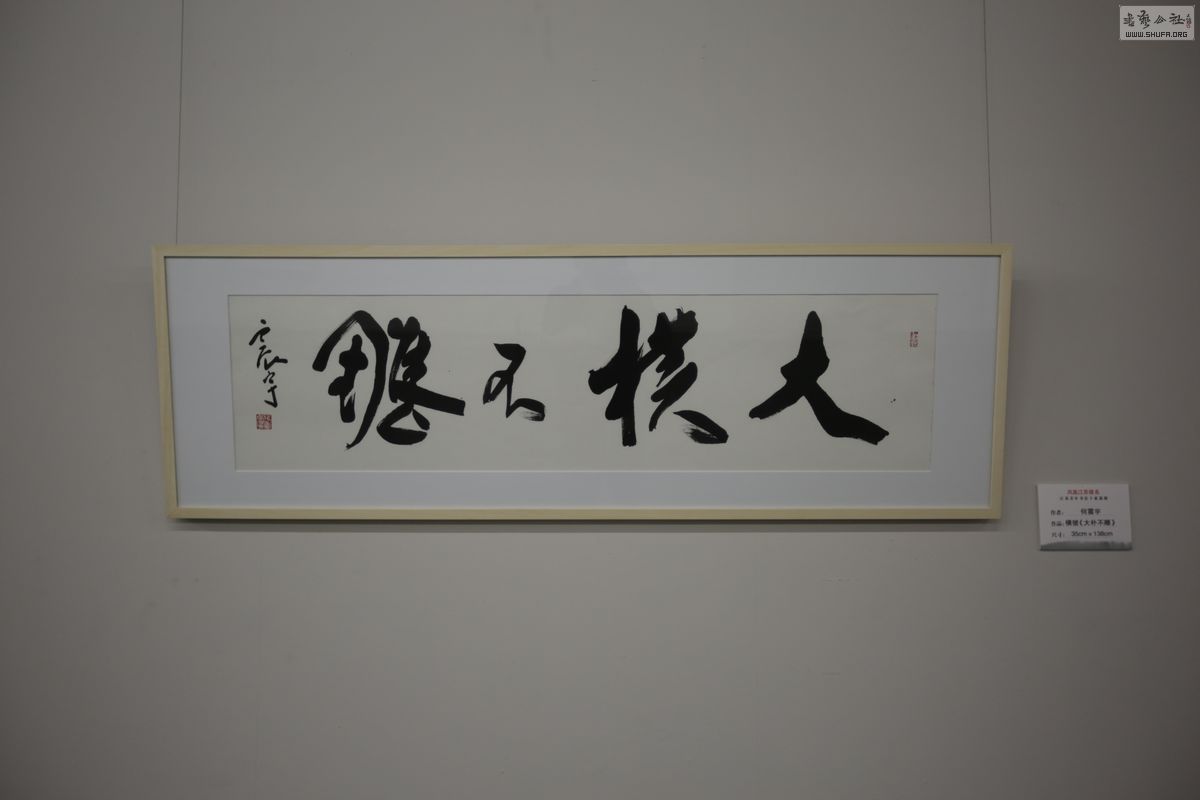 大樸不雕
震宇
作者: 何震宇
作品: 横披《大朴不雕》
尺寸: 35cm x 138cm
书艺公社
WWW.SHUFA.ORG